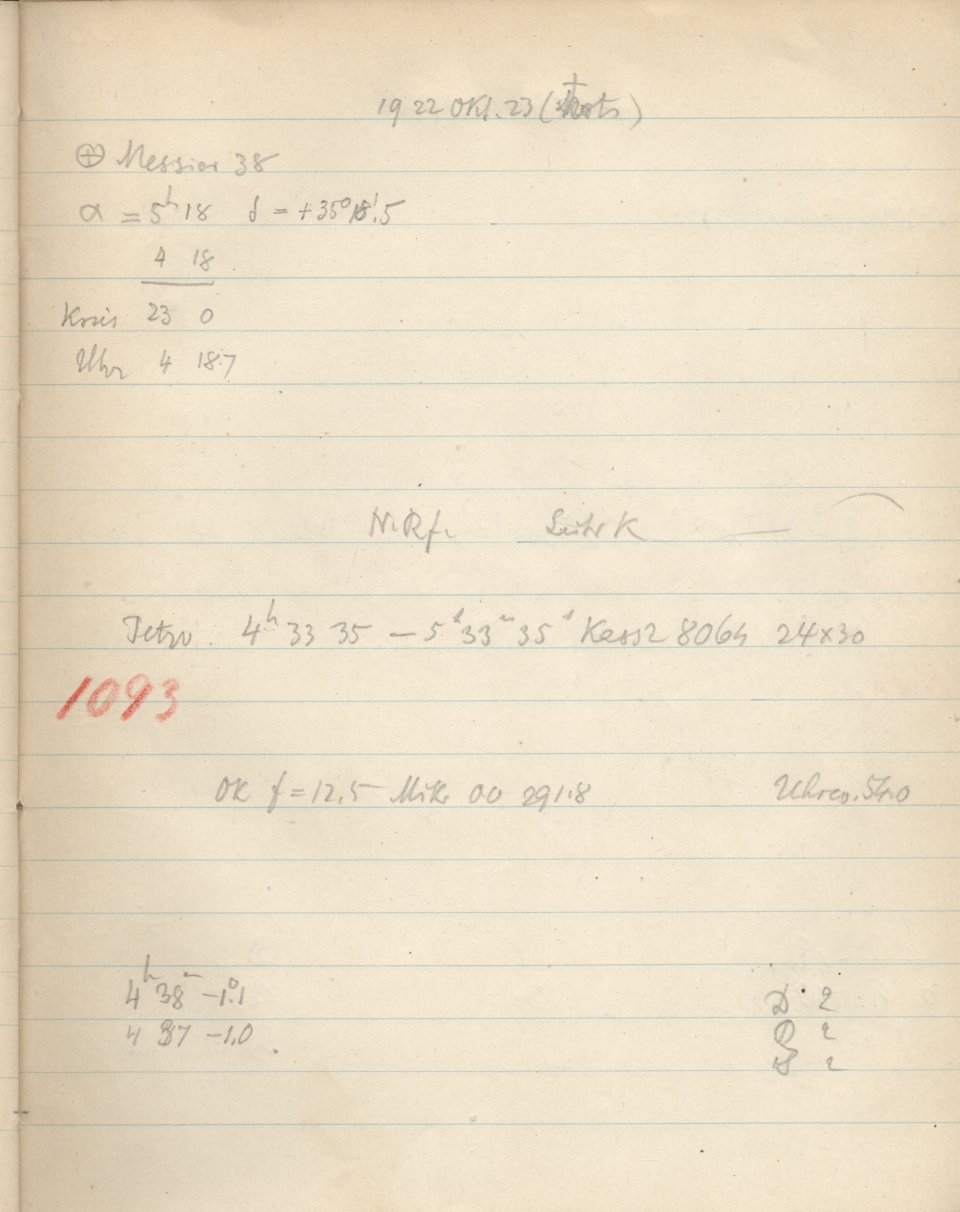 1922 Okt. 23 (
⊕ Messier 38
α = 5h 18 δ = +35° 18'.5
4 18
Kreis 23 0
Uhr 4 18.7
N. Rfr. Leitr K —
Jetzo. 4h 33 35 – 5h 33m 35s Kass 2 8064 24x30
1093
OK f = 12,5 Mik 00 291.8 Uhrco. 54.0
4h 38m –1°.1
4 37 –1.0
D. 2
R 2
S 2